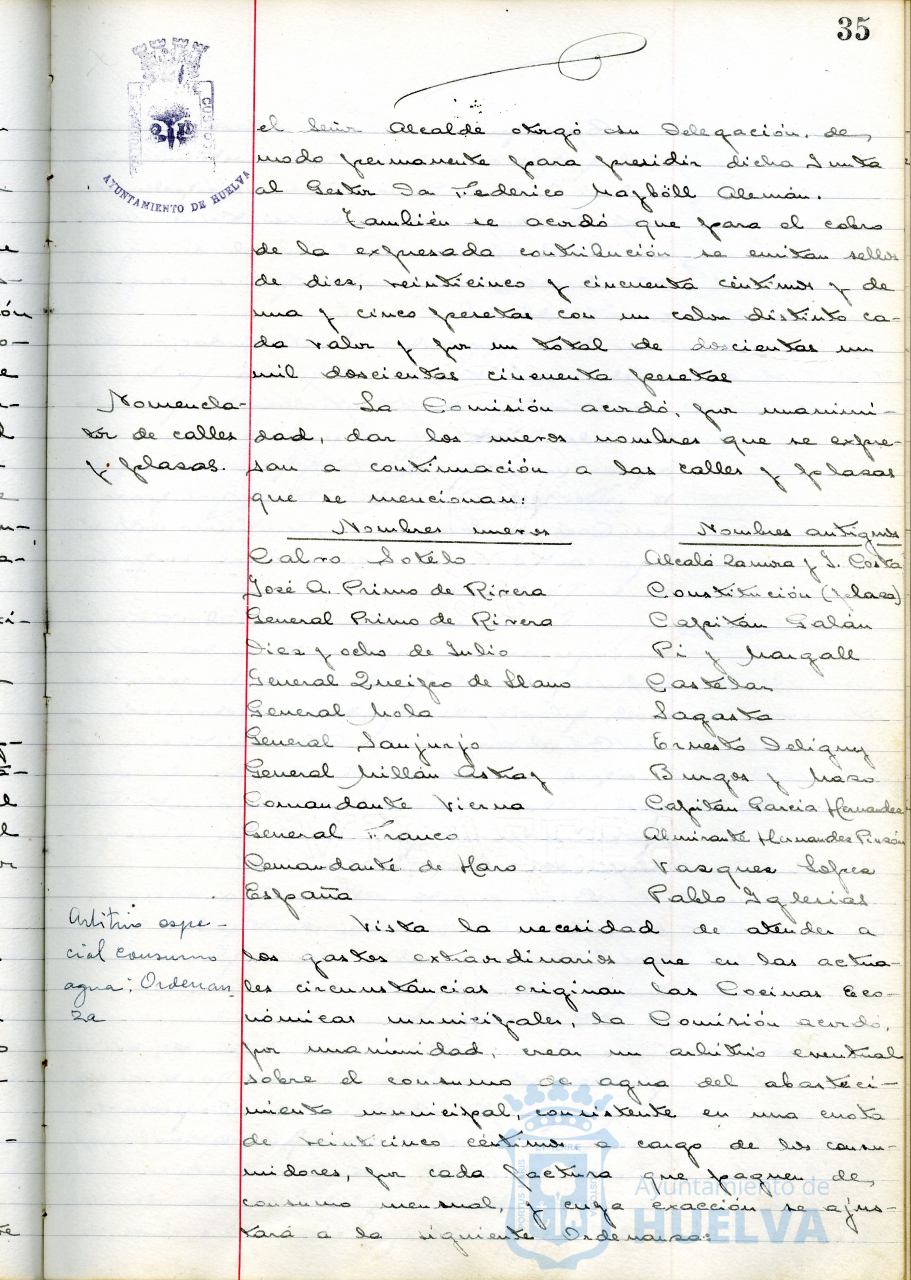 35
AYUNTAMIENTO DE HUELVA
el Señor Alcalde otorgó su Delegación, de
modo permanente para presidir dicha Junta
al Gestor Dn Federico Mayböll Alemán.
También se acordó que para el cobro
de la expresada contribución se emitan sellos
de diez, veinticinco y cincuenta céntimos y de
una y cinco pesetas con un color distinto ca-
da valor y por un total de doscientas un
mil doscientas cincuenta pesetas
Nomencla-
tor de calles
y plazas.
La Comisión acordó, por unanimi-
dad, dar los nuevos nombres que se expre-
san a continuación a las calles y plazas
que se mencionan:
Nombres nuevos Nombres antiguos
Calvo Sotelo Alcalá Zamora y J. Costa
José A. Primo de Rivera Constitución (plaza)
General Primo de Rivera Capitán Galán
Diez y ocho de Julio Pi y Margall
General Queipo de Llano Castelar
General Mola Sagasta
General Sanjurjo Ernesto Deligny
General Millán Astray Burgos y Mazo
Comandante Vierna Capitán García Hernandez
General Franco Almirante Hernandez Pinzón
Comandante de Haro Vazquez Lopez
España Pablo Iglesias
Arbitrio espe-
cial consumo
agua; Ordenan-
za
Vista la necesidad de atender a
los gastos extraordinarios que en las actua-
les circunstancias originan las Cocinas Eco-
nómicas municipales, la Comisión acordó,
por unanimidad, crear un arbitrio eventual
sobre el consumo de agua del abasteci-
miento municipal, consistente en una cuota
de veinticinco céntimos a cargo de los consu-
midores, por cada factura que paguen de
consumo mensual, y cuya exacción se ajus-
tará a la siguiente Ordenanza:
Ayuntamiento de
HUELVA